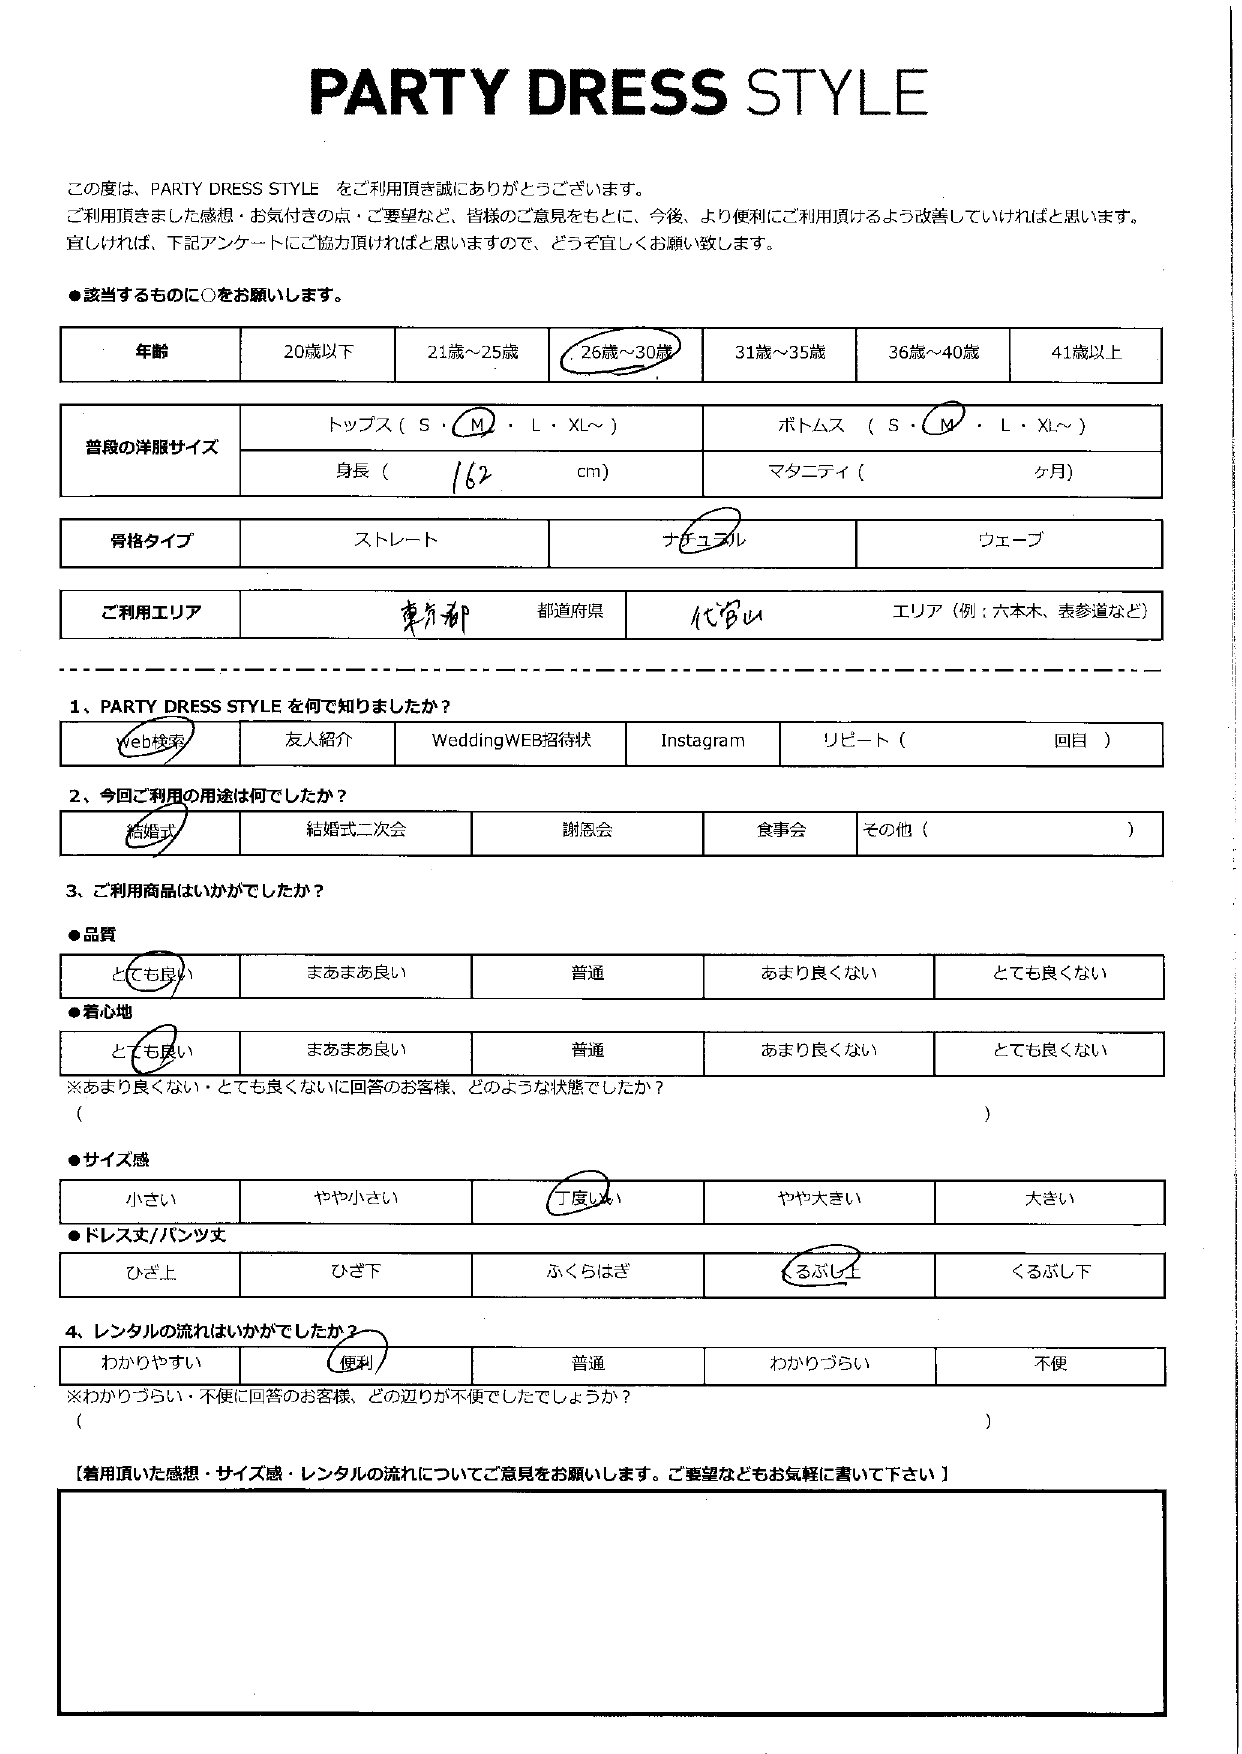 PARTY DRESS STYLE
この度は、PARTY DRESS STYLE　をご利用頂き誠にありがとうございます。
ご利用頂きました感想・お気付きの点・ご要望など、皆様のご意見をもとに、今後、より便利にご利用頂けるよう改善していければと思います。
宜しければ、下記アンケートにご協力頂ければと思いますので、どうぞ宜しくお願い致します。
●該当するものに○をお願いします。
年齢 20歳以下 21歳～25歳 26歳～30歳 31歳～35歳 36歳～40歳 41歳以上
普段の洋服サイズ
トップス ( S ・ M ・ L ・ XL～ ) ボトムス ( S ・ M ・ L ・ XL～ )
身長 ( 162 cm) マタニティ ( ヶ月)
骨格タイプ ストレート ナチュラル ウェーブ
ご利用エリア 東京都 都道府県 代官山 エリア（例；六本木、表参道など）
1、PARTY DRESS STYLE を何で知りましたか？
Web検索 友人紹介 WeddingWEB招待状 Instagram リピート ( 回目 )
2、今回ご利用の用途は何でしたか？
結婚式 結婚式二次会 謝恩会 食事会 その他 ( )
3、ご利用商品はいかがでしたか？
●品質
とても良い まあまあ良い 普通 あまり良くない とても良くない
●着心地
とても良い まあまあ良い 普通 あまり良くない とても良くない
※あまり良くない・とても良くないに回答のお客様、どのような状態でしたか？
( )
●サイズ感
小さい やや小さい 丁度いい やや大きい 大きい
●ドレス丈/パンツ丈
ひざ上 ひざ下 ふくらはぎ くるぶし上 くるぶし下
4、レンタルの流れはいかがでしたか？
わかりやすい 便利 普通 わかりづらい 不便
※わかりづらい・不便に回答のお客様、どの辺りが不便でしたでしょうか？
( )
【着用頂いた感想・サイズ感・レンタルの流れについてご意見をお願いします。ご要望などもお気軽に書いて下さい】